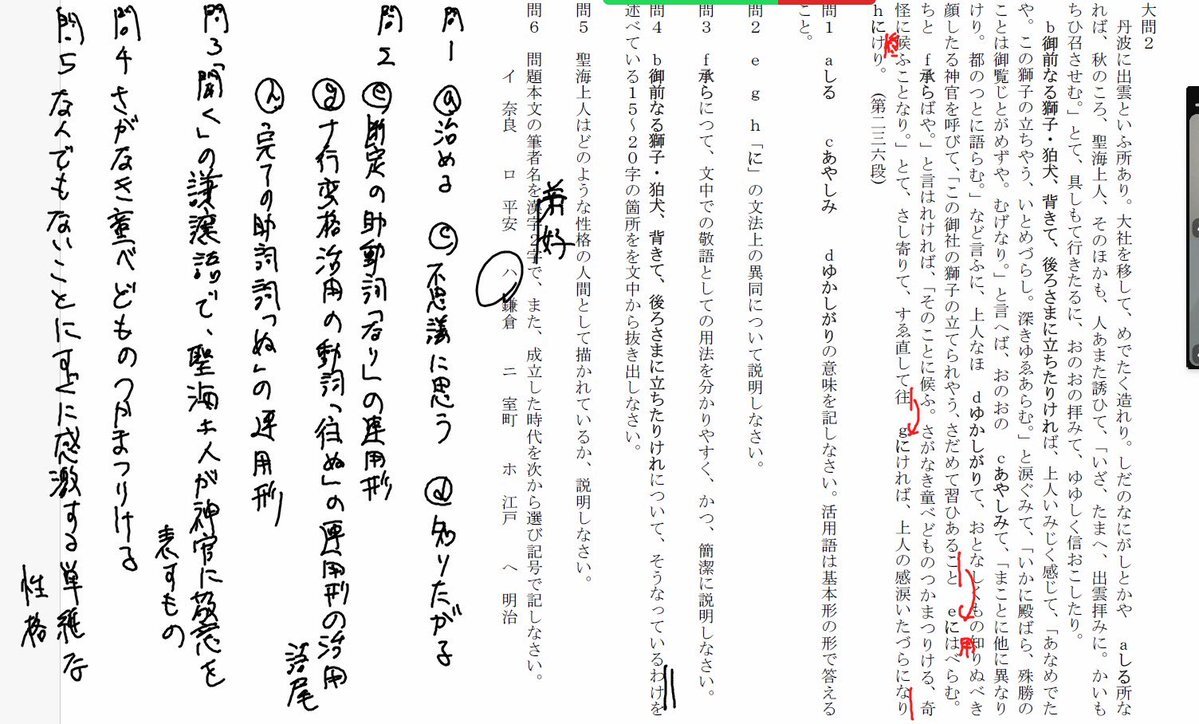 大問2
丹波に出雲といふ所あり。大社を移して、めでたく造れり。しだのなにがしとかや aしる所な
れば、秋のころ、聖海上人、そのほかも、人あまた誘ひて、「いざ、たまへ、出雲拝みに。かいも
ちひ召させむ。」とて、具しもて行きたるに、おのおの拝みて、ゆゆしく信おこしたり。
b御前なる獅子・狛犬、背きて、後ろさまに立ちたりければ、上人いみじく感じて、「あなめでた
や。この獅子の立ちやう、いとめづらし。深きゆゑあらむ。」と涙ぐみて、「いかに殿ばら、殊勝の
ことは御覧じとがめずや。むげなり。」と言へば、おのおの cあやしみて、「まことに他に異なり
けり。都のつとに語らむ。」など言ふに、上人なほ dゆかしがりて、おとなしくもの知りぬべき
顔したる神官を呼びて、「この御社の獅子の立てられやう、さだめて習ひあること eにはべらむ。
ちと f承らばや。」と言はれければ、「そのことに候ふ。さがなき童べどものつかまつりける、奇
怪に候ふことなり。」とて、さし寄りて、すゑ直して往 gにければ、上人の感涙いたづらになり
hにけり。（第二三六段）
用
問1 aしる cあやしみ dゆかしがりの意味を記しなさい。活用語は基本形の形で答える
こと。
問2 e g h「に」の文法上の異同について説明しなさい。
問3 f承らにつて、文中での敬語としての用法を分かりやすく、かつ、簡潔に説明しなさい。
問4 b御前なる獅子・狛犬、背きて、後ろさまに立ちたりけれについて、そうなっているわけを
述べている15～20字の箇所をを文中から抜き出しなさい。
問5 聖海上人はどのような性格の人間として描かれているか、説明しなさい。
問6 問題本文の筆者名を漢字2字で、また、成立した時代を次から選び記号で記しなさい。
イ 奈良 ロ 平安 ハ 鎌倉 ニ 室町 ホ 江戸 ヘ 明治
兼好
問1 ⓐ治める ⓒ不思議に思う ⓓ知りたがる
問2 ⓔ断定の助動詞「なり」の連用形
ⓖナ行変格活用の動詞「往ぬ」の連用形の活用
語尾
ⓗ完了の助詞詞「ぬ」の連用形
問3「聞く」の謙譲語で、聖海上人が神官に敬意を
表すもの
問4 さがなき童べどものつかまつりける
問5 なんでもないことにすぐに感激する単純な
性格